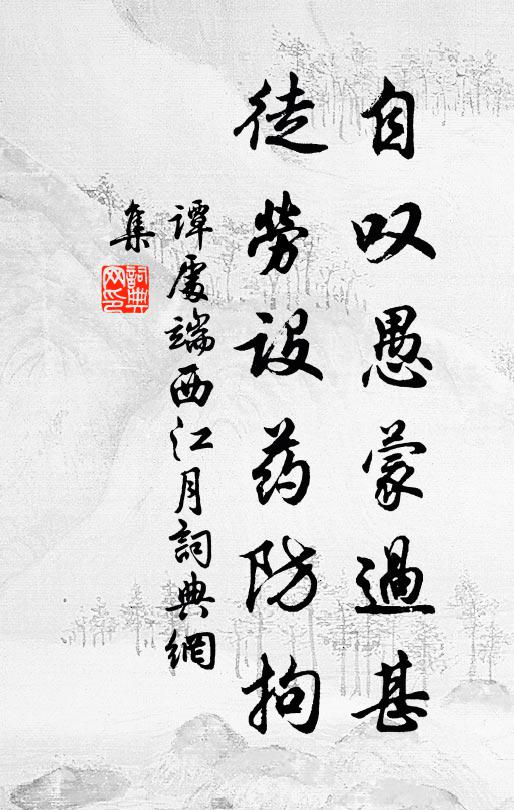 自叹愚蒙過甚
徒勞設药防拘
譚處端西江月詞典網
集
詞典
网印